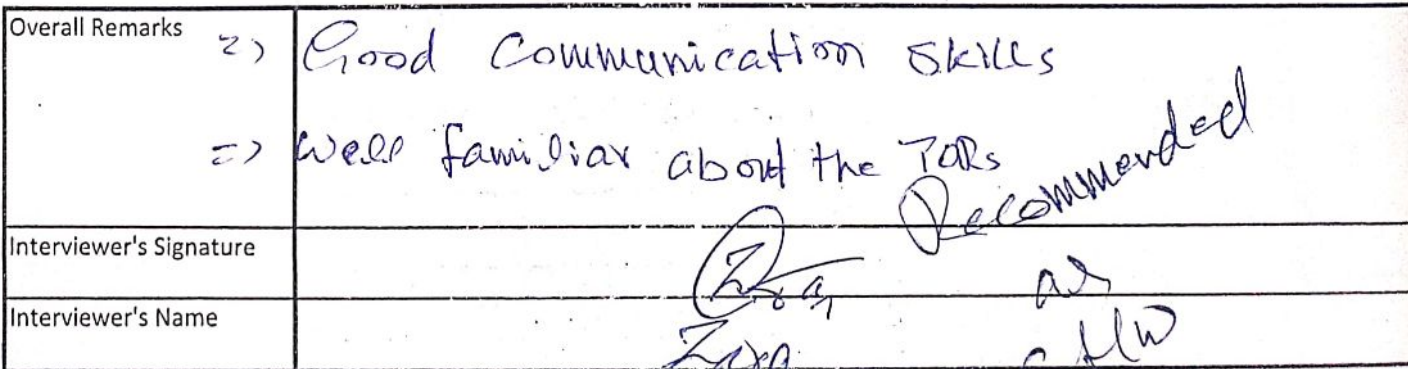 Overall Remarks
=> Good Communication Skills
=> Well familiar about the TORs
Recommended
Interviewer's Signature
as
Interviewer's Name
CHW